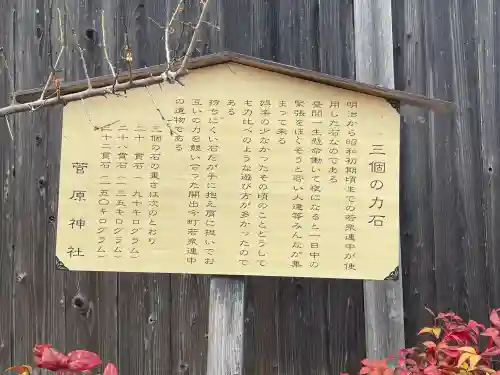 三個の力石
明治から昭和初期頃までの若衆連中が使
用した石なのである
昼間一生懸命働いて夜になると一日中の
緊張をほぐそうと若い人達等みんなが集
まって来る
娯楽の少なかったその頃のこととどうして
も力比べのような遊び方が多かったので
ある
持ちにくい石だが手に抱え肩に担いでお
互いの力を競い合った開出今町若衆連中
の遺物である
三個の石の重さは次のとおり
二十四貫石(九十キログラム)
二十六貫石(一三五キログラム)
二十二貫石(一五〇キログラム)
菅原神社